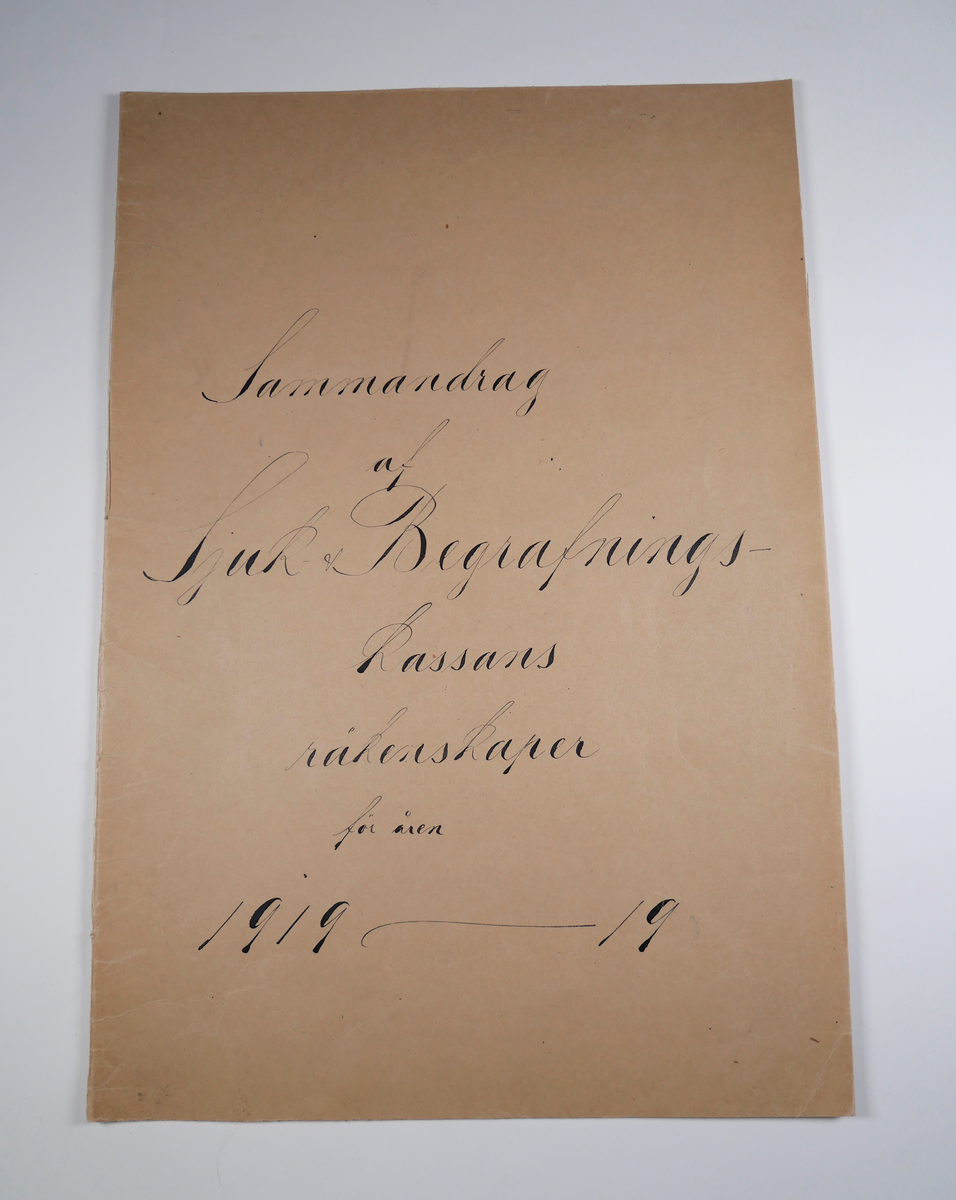 Sammandrag
af
Sjuk- & Begrafnings-
kassans
räkenskaper
för åren
1919 — 19